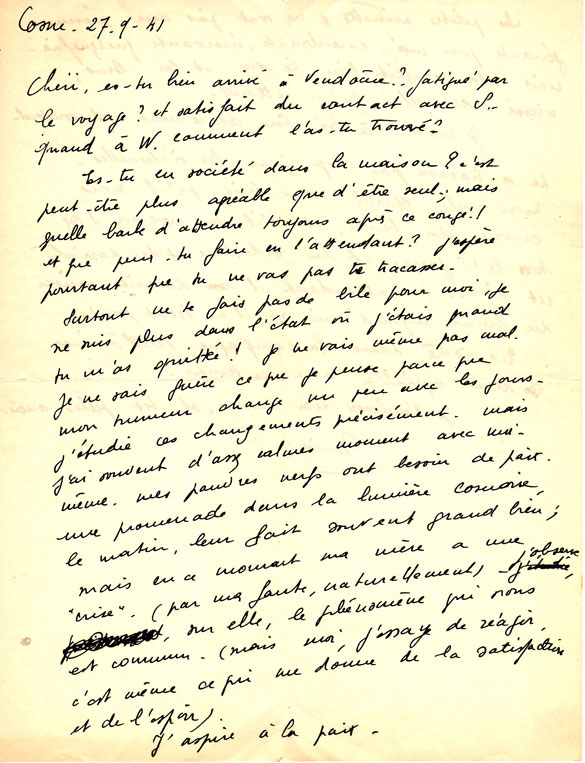 Cosne - 27-9-41
Chéri, es-tu bien arrivé à Vendôme? fatigué par
le voyage? et satisfait du contact avec S.-
quand à W. comment l'as-tu trouvé?
Es-tu en société dans la maison? c'est
peut-être plus agréable que d'être seul; mais
quelle barbe d'attendre toujours après ce congé!!
et que peux-tu faire en l'attendant? j'espère
pourtant que tu ne vas pas te tracasser.
Surtout ne te fais pas de bile pour moi, je
ne suis plus dans l'état où j'étais quand
tu m'as quittée! je ne vais même pas mal.
Je ne sais guère ce que je pense parce que
mon humeur change un peu avec les jours-
j'étudie ces changements précisément. mais
j'ai souvent d'assez calmes moment avec moi-
même. mes pauvres nerfs ont besoin de paix.
une promenade dans la lumière cosnoise,
le matin, leur fait souvent grand bien;
mais en ce moment ma mère a une
"crise". (par ma faute, naturellement) j'étudie, j'observe
sur elle, le phénomène qui nous
est commun. (mais moi, j'essaye de réagir,
c'est même ce qui me donne de la satisfaction
et de l'espoir).
J'aspire à la paix -